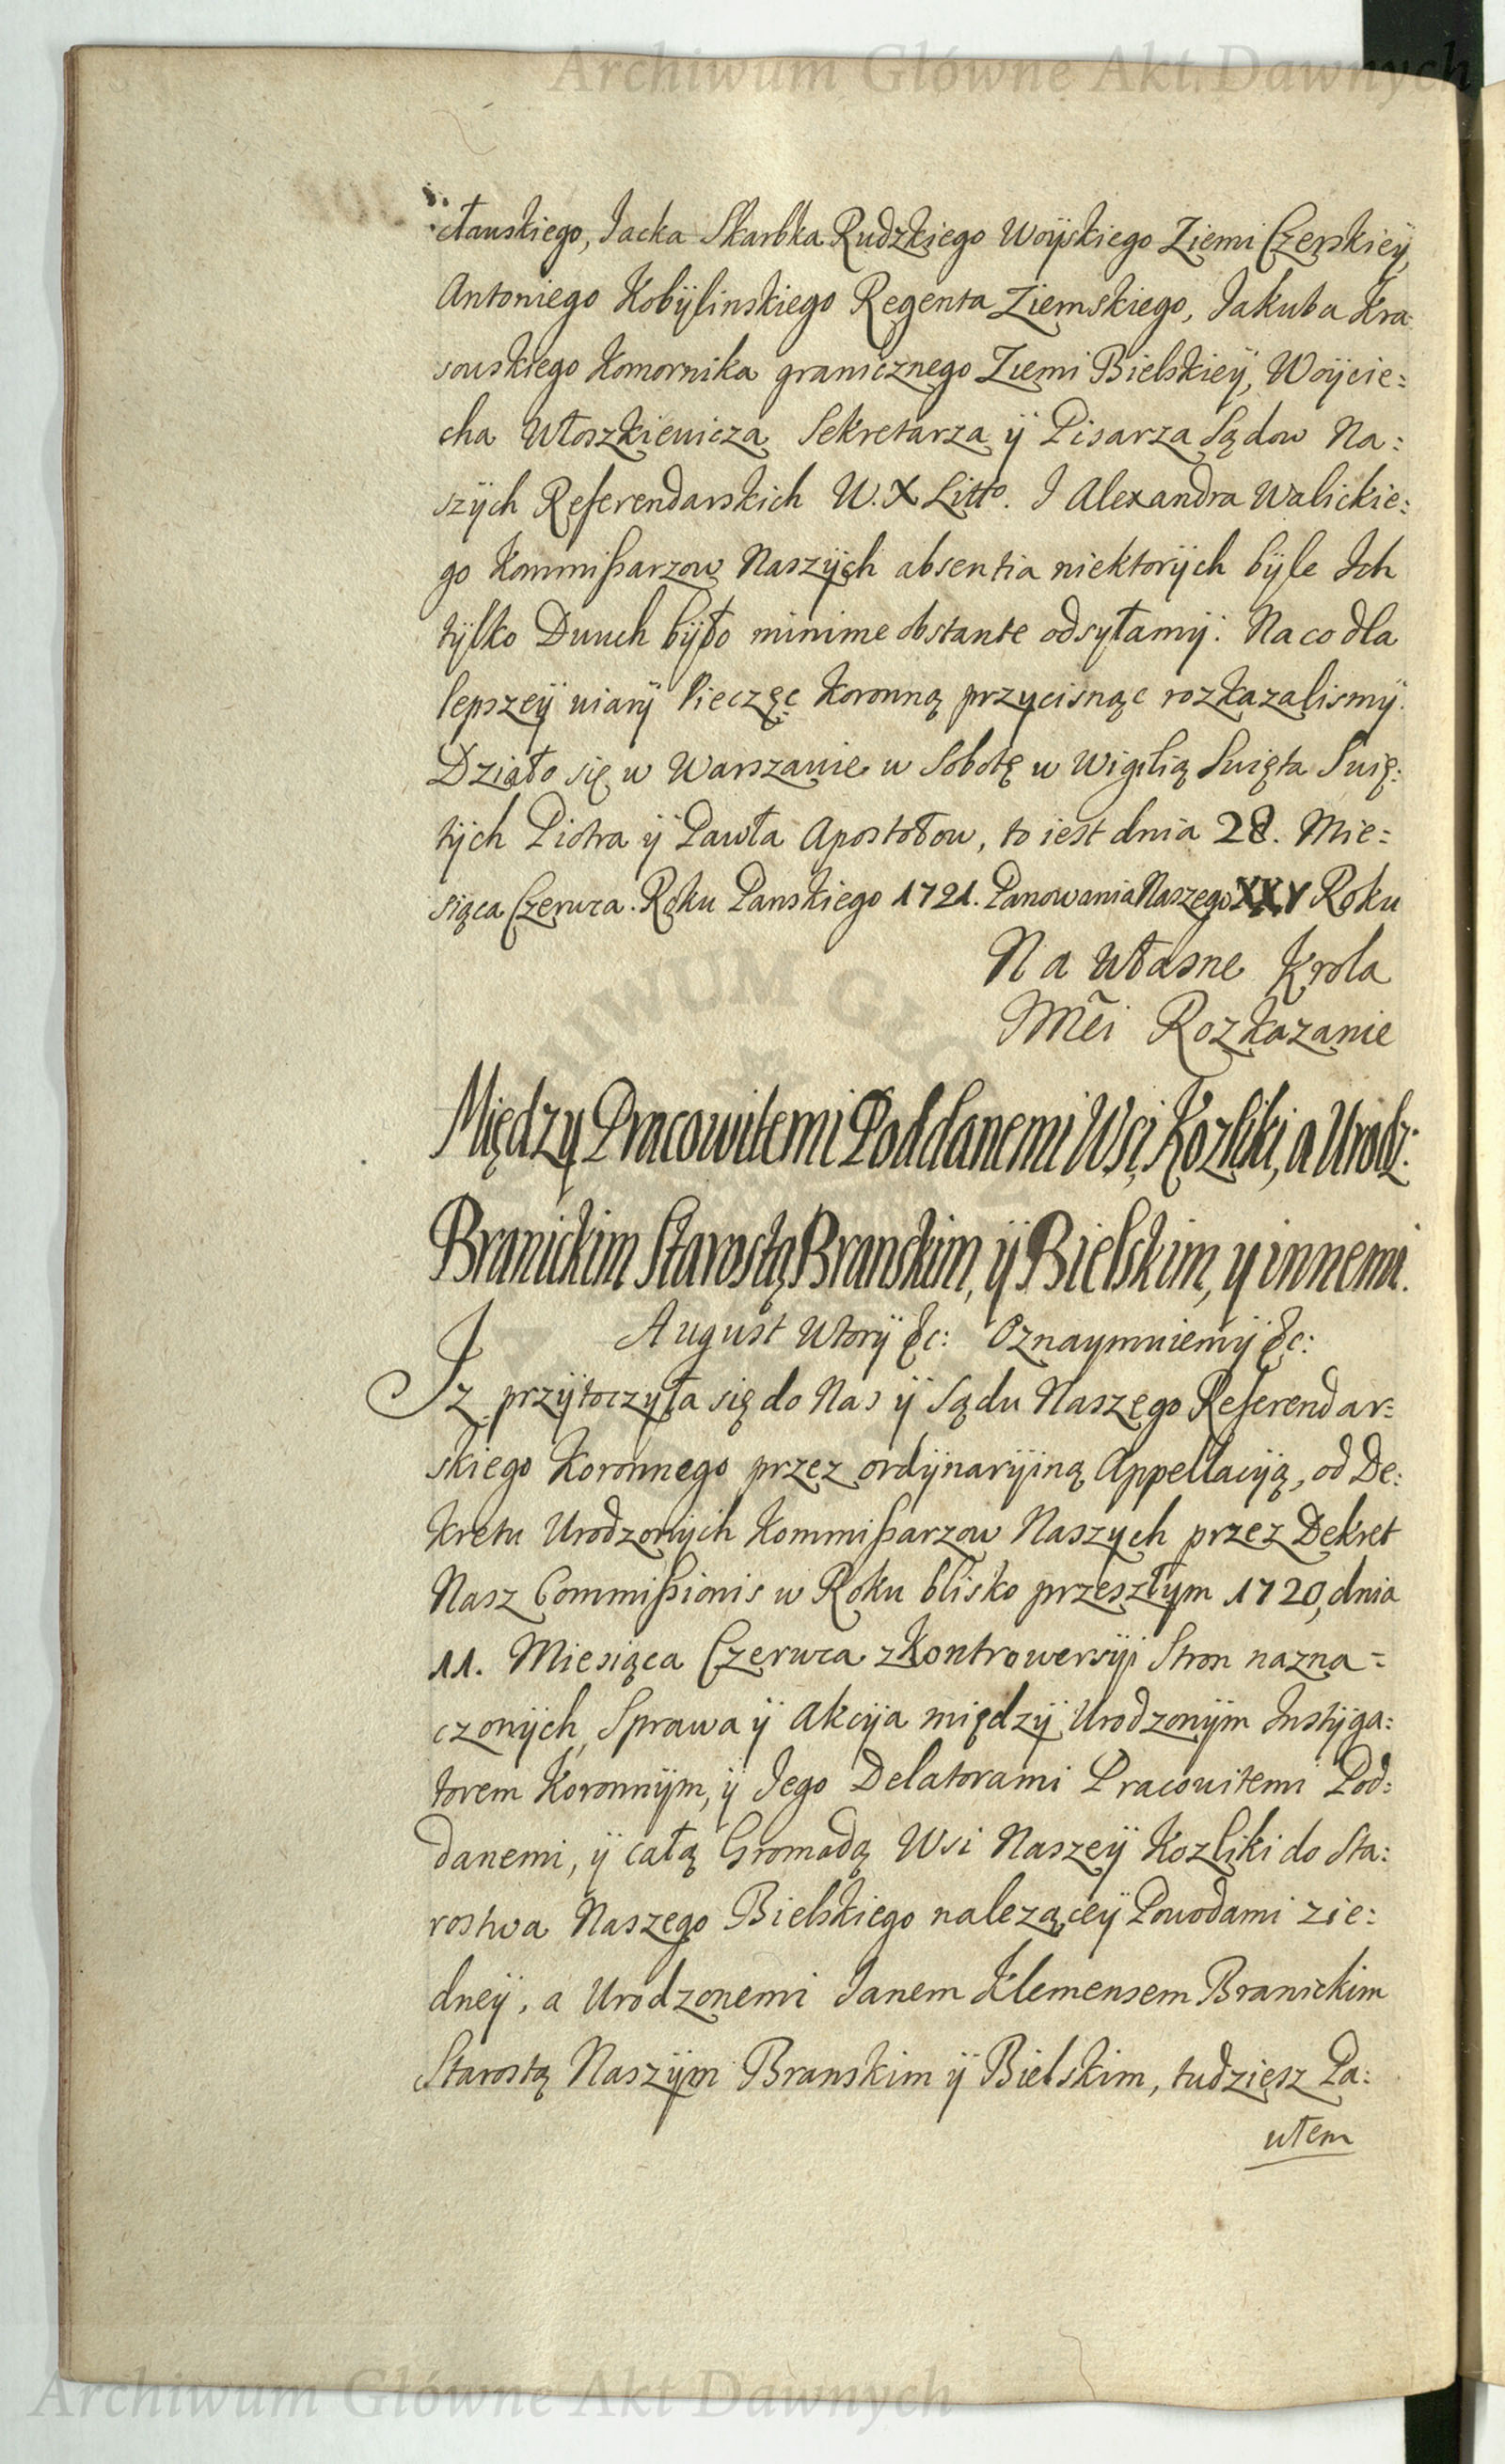 Archiwum Główne Akt Dawnych
cławskiego, Jacka Skarbka Rudzkiego Woÿskiego Ziemi Czerskieÿ,
Antoniego Kobÿlinskiego Regenta Ziemskiego, Jakuba Kra
sowskiego Komornika granicznego Ziemi Bielskieÿ, Woÿcie=
cha Włoszkiewicza Sekretarza ÿ Pisarza Sądow Na=
szÿch Referendarskich W. X Litto. I Alexandra Walickie=
go Kommißarzow Naszÿch absentia niektorÿch bÿle Ich
tÿlko Dwuch bÿło minime obstante odsÿłamÿ. Na co dla
lepszeÿ wiarÿ Pieczęc Koronną przycisnąc rozkazalismÿ.
Działo się w Warszawie w Sobotę w Wigilią Swięta Swię=
tÿch Piotra ÿ Pawła Apostołow, to iest dnia 28. Mie=
siąca Czerwca. Roku Panskiego 1721. Panowania Naszego XXV Roku
Na własne Krola
Mc̃i Rozkazanie
Między Pracowitemi Poddanemi Wsi Kozliki, a Urodz:
Branickim Starostą Branskim, ÿ Bielskim, y innemi.
August Wtorÿ &c: Oznaymuiemÿ &c:
Iz przÿtoczyła się do Nas ÿ Sądu Naszego Referendar=
skiego Koronnego przez ordÿnarÿiną Appellacÿą, od De=
kretu Urodzonÿch Kommißarzow Naszych przez Dekret
Nasz Commißionis w Roku blisko przeszłym 1720, dnia
11. Miesiąca Czerwca z Kontrowersÿi Stron nazna=
czonÿch, Sprawa ÿ Akcÿa międzÿ Urodzonÿm Instÿga=
torem Koronnÿm, ÿ Jego Delatorami Pracowitemi Pod=
danemi, ÿ całą Gromadą Wsi Naszeÿ Kozliki do Sta=
rostwa Naszego Bielskiego nalezącey Powodami z ie=
dneÿ, a Urodzonemi Janem Klemensem Branickim
Starostą Naszÿm Branskim ÿ Bielskim, tudziesz Pa=
włem
Archiwum Główne Akt Dawnych